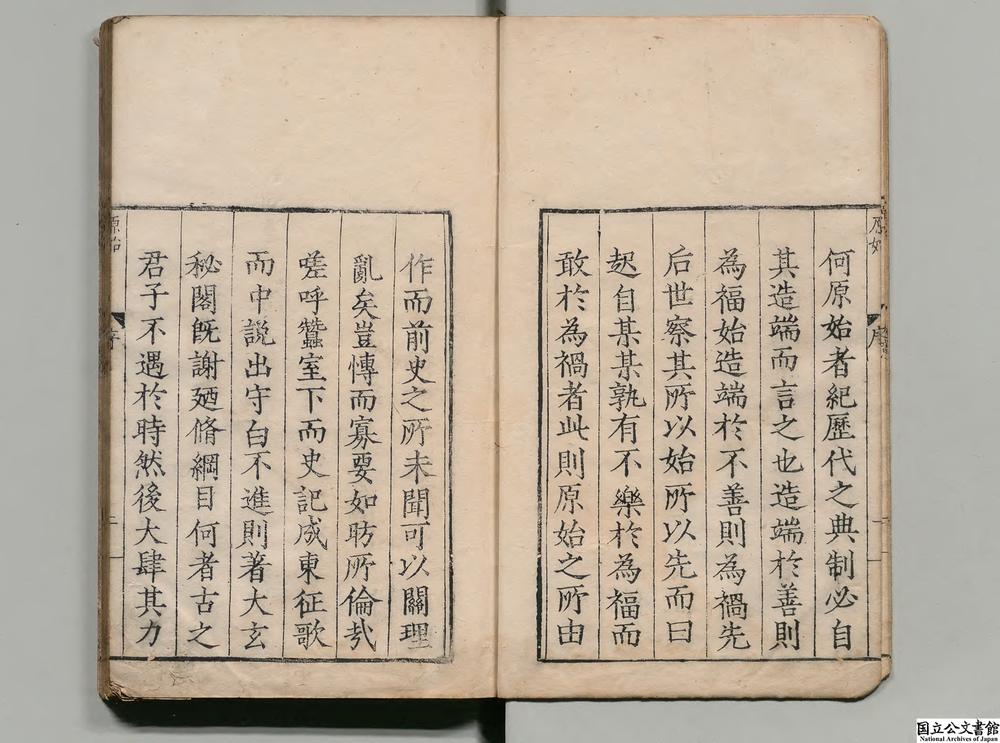 何原始者紀歷代之典制必自
其造端而言之也造端於善則
為福始造端於不善則為禍先
后世察其所以始所以先而曰
起自某某孰有不樂於為福而
敢於為禍者此則原始之所由
作而前史之所未聞可以關理
亂矣豈慱而寡要如昉所倫㢤
嗟呼蠶室下而史記成東征歌
而中說出守白不進則著大玄
秘閣既謝廼脩綱目何者古之
君子不遇於時然後大肆其力
原始
序
国立公文書館
National Archives of Japan